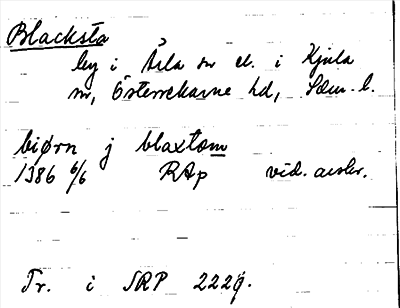 Blacksta
by i Ärla sn el. i Kjula
sn, Österrekarne hd, Södm. l.
biørn j blaxtom
1386 6/6 RAp vid. avskr.
Tr. i SRP 2229.